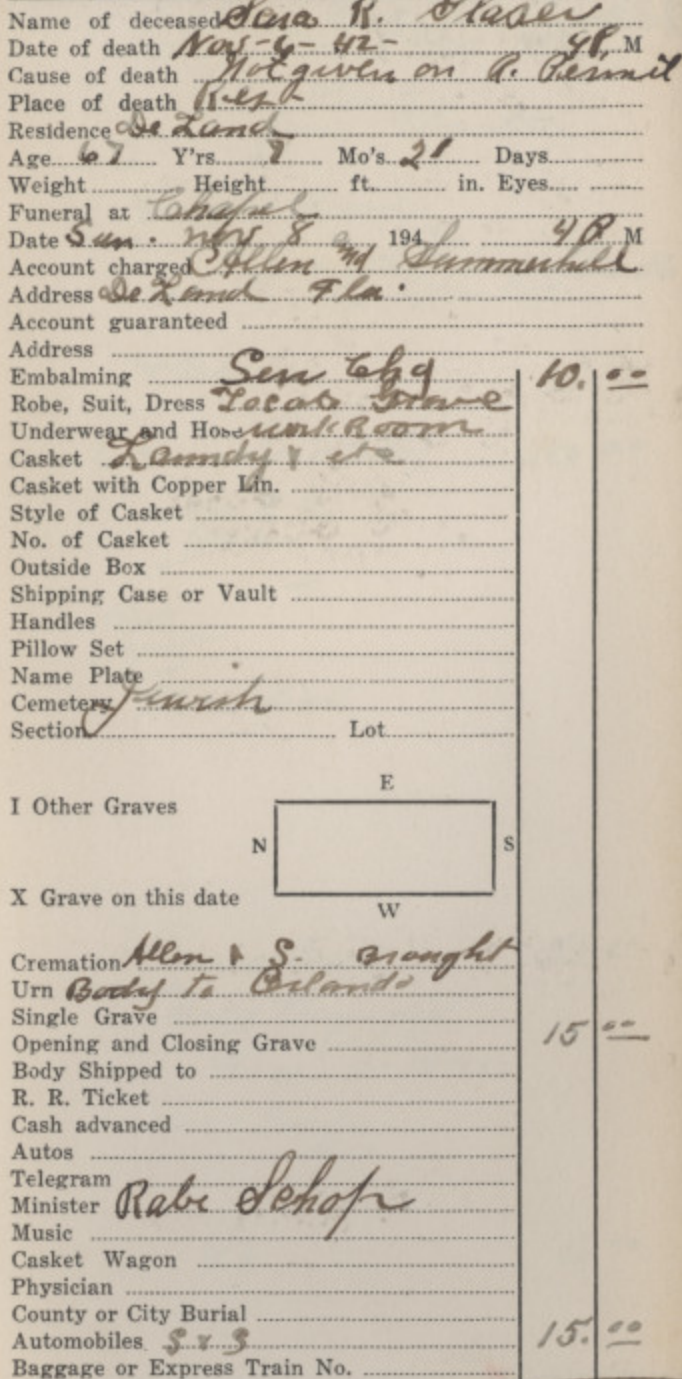 Name of deceased Sara R. Glaser
Date of death Nov-6-42- 4 P. M
Cause of death Not given on R. Permit
Place of death Res
Residence De Land
Age 67 Y'rs. 8 Mo's 21 Days
Weight Height ft. in. Eyes
Funeral at Chapel
Date Sun. Nov 8 194 4 P M
Account charged Allen and Summerhill
Address De Land Fla.
Account guaranteed
Address
Embalming Serv Chg 10. 00
Robe, Suit, Dress Locate Grave
Underwear and Hose work Room
Casket Laundry & etc
Casket with Copper Lin.
Style of Casket
No. of Casket
Outside Box
Shipping Case or Vault
Handles
Pillow Set
Name Plate
Cemetery Jewish
Section Lot
E
I Other Graves
N S
X Grave on this date
W
Cremation Allen & S. Brought
Urn Body to Orlando
Single Grave
Opening and Closing Grave 15 00
Body Shipped to
R. R. Ticket
Cash advanced
Autos
Telegram
Minister Rabi Schop
Music
Casket Wagon
Physician
County or City Burial
Automobiles 15. 00
Baggage or Express Train No.